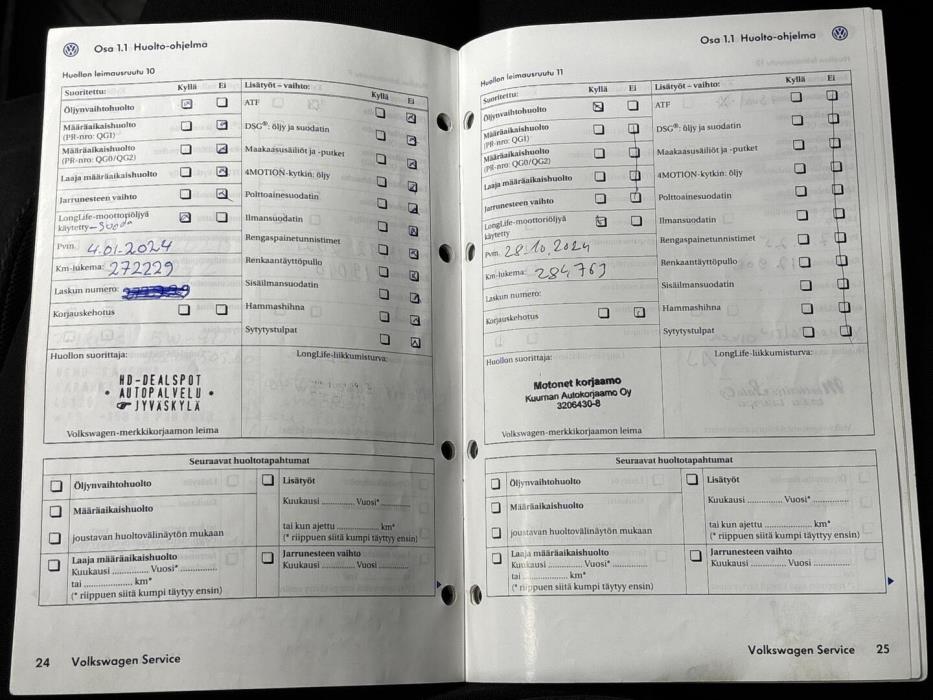 Osa 1.1 Huolto-ohjelma
Huollon leimausruutu 10
Suoritettu: Kyllä Ei
Öljynvaihtohuolto
Määräaikaishuolto
(PR-nro: QG1)
Määräaikaishuolto
(PR-nro: QG0/QG2)
Laaja määräaikaishuolto
Jarrunesteen vaihto
LongLife-moottoriöljyä
käytetty
Pvm. 4.01-2024
Km-lukema: 272229
Laskun numero:
Korjauskehotus
Lisätyöt – vaihto: Kyllä Ei
ATF
DSG®: öljy ja suodatin
Maakaasusäiliöt ja -putket
4MOTION-kytkin: öljy
Polttoainesuodatin
Ilmansuodatin
Rengaspainetunnistimet
Renkaantäyttöpullo
Sisäilmansuodatin
Hammashihna
Sytytystulpat
Huollon suorittaja:
HD-DEALSPOT
• AUTOPALVELU •
☞ JYVÄSKYLÄ
Volkswagen-merkkikorjaamon leima
LongLife-liikkumisturva:
Seuraavat huoltotapahtumat
Öljynvaihtohuolto
Määräaikaishuolto
joustavan huoltovälinäytön mukaan
Laaja määräaikaishuolto
Kuukausi ............ Vuosi* ..............
tai .................. km*
(* riippuen siitä kumpi täytyy ensin)
Lisätyöt
Kuukausi ............ Vuosi* ..............
tai kun ajettu ............... km*
(* riippuen siitä kumpi täytyy ensin)
Jarrunesteen vaihto
Kuukausi ............ Vuosi ............
24 Volkswagen Service
Osa 1.1 Huolto-ohjelma
Huollon leimausruutu 11
Suoritettu: Kyllä Ei
Öljynvaihtohuolto
Määräaikaishuolto
(PR-nro: QG1)
Määräaikaishuolto
(PR-nro: QG0/QG2)
Laaja määräaikaishuolto
Jarrunesteen vaihto
LongLife-moottoriöljyä
käytetty
Pvm. 28.10.2024
Km-lukema: 284763
Laskun numero:
Korjauskehotus
Lisätyöt – vaihto: Kyllä Ei
ATF
DSG®: öljy ja suodatin
Maakaasusäiliöt ja -putket
4MOTION-kytkin: öljy
Polttoainesuodatin
Ilmansuodatin
Rengaspainetunnistimet
Renkaantäyttöpullo
Sisäilmansuodatin
Hammashihna
Sytytystulpat
Huollon suorittaja:
Motonet korjaamo
Kuurnan Autokorjaamo Oy
3206430-8
Volkswagen-merkkikorjaamon leima
LongLife-liikkumisturva:
Seuraavat huoltotapahtumat
Öljynvaihtohuolto
Määräaikaishuolto
joustavan huoltovälinäytön mukaan
Laaja määräaikaishuolto
Kuukausi ............ Vuosi* ..............
tai .................. km*
(* riippuen siitä kumpi täytyy ensin)
Lisätyöt
Kuukausi ............ Vuosi* ..............
tai kun ajettu ............... km*
(* riippuen siitä kumpi täytyy ensin)
Jarrunesteen vaihto
Kuukausi ............ Vuosi ............
Volkswagen Service 25